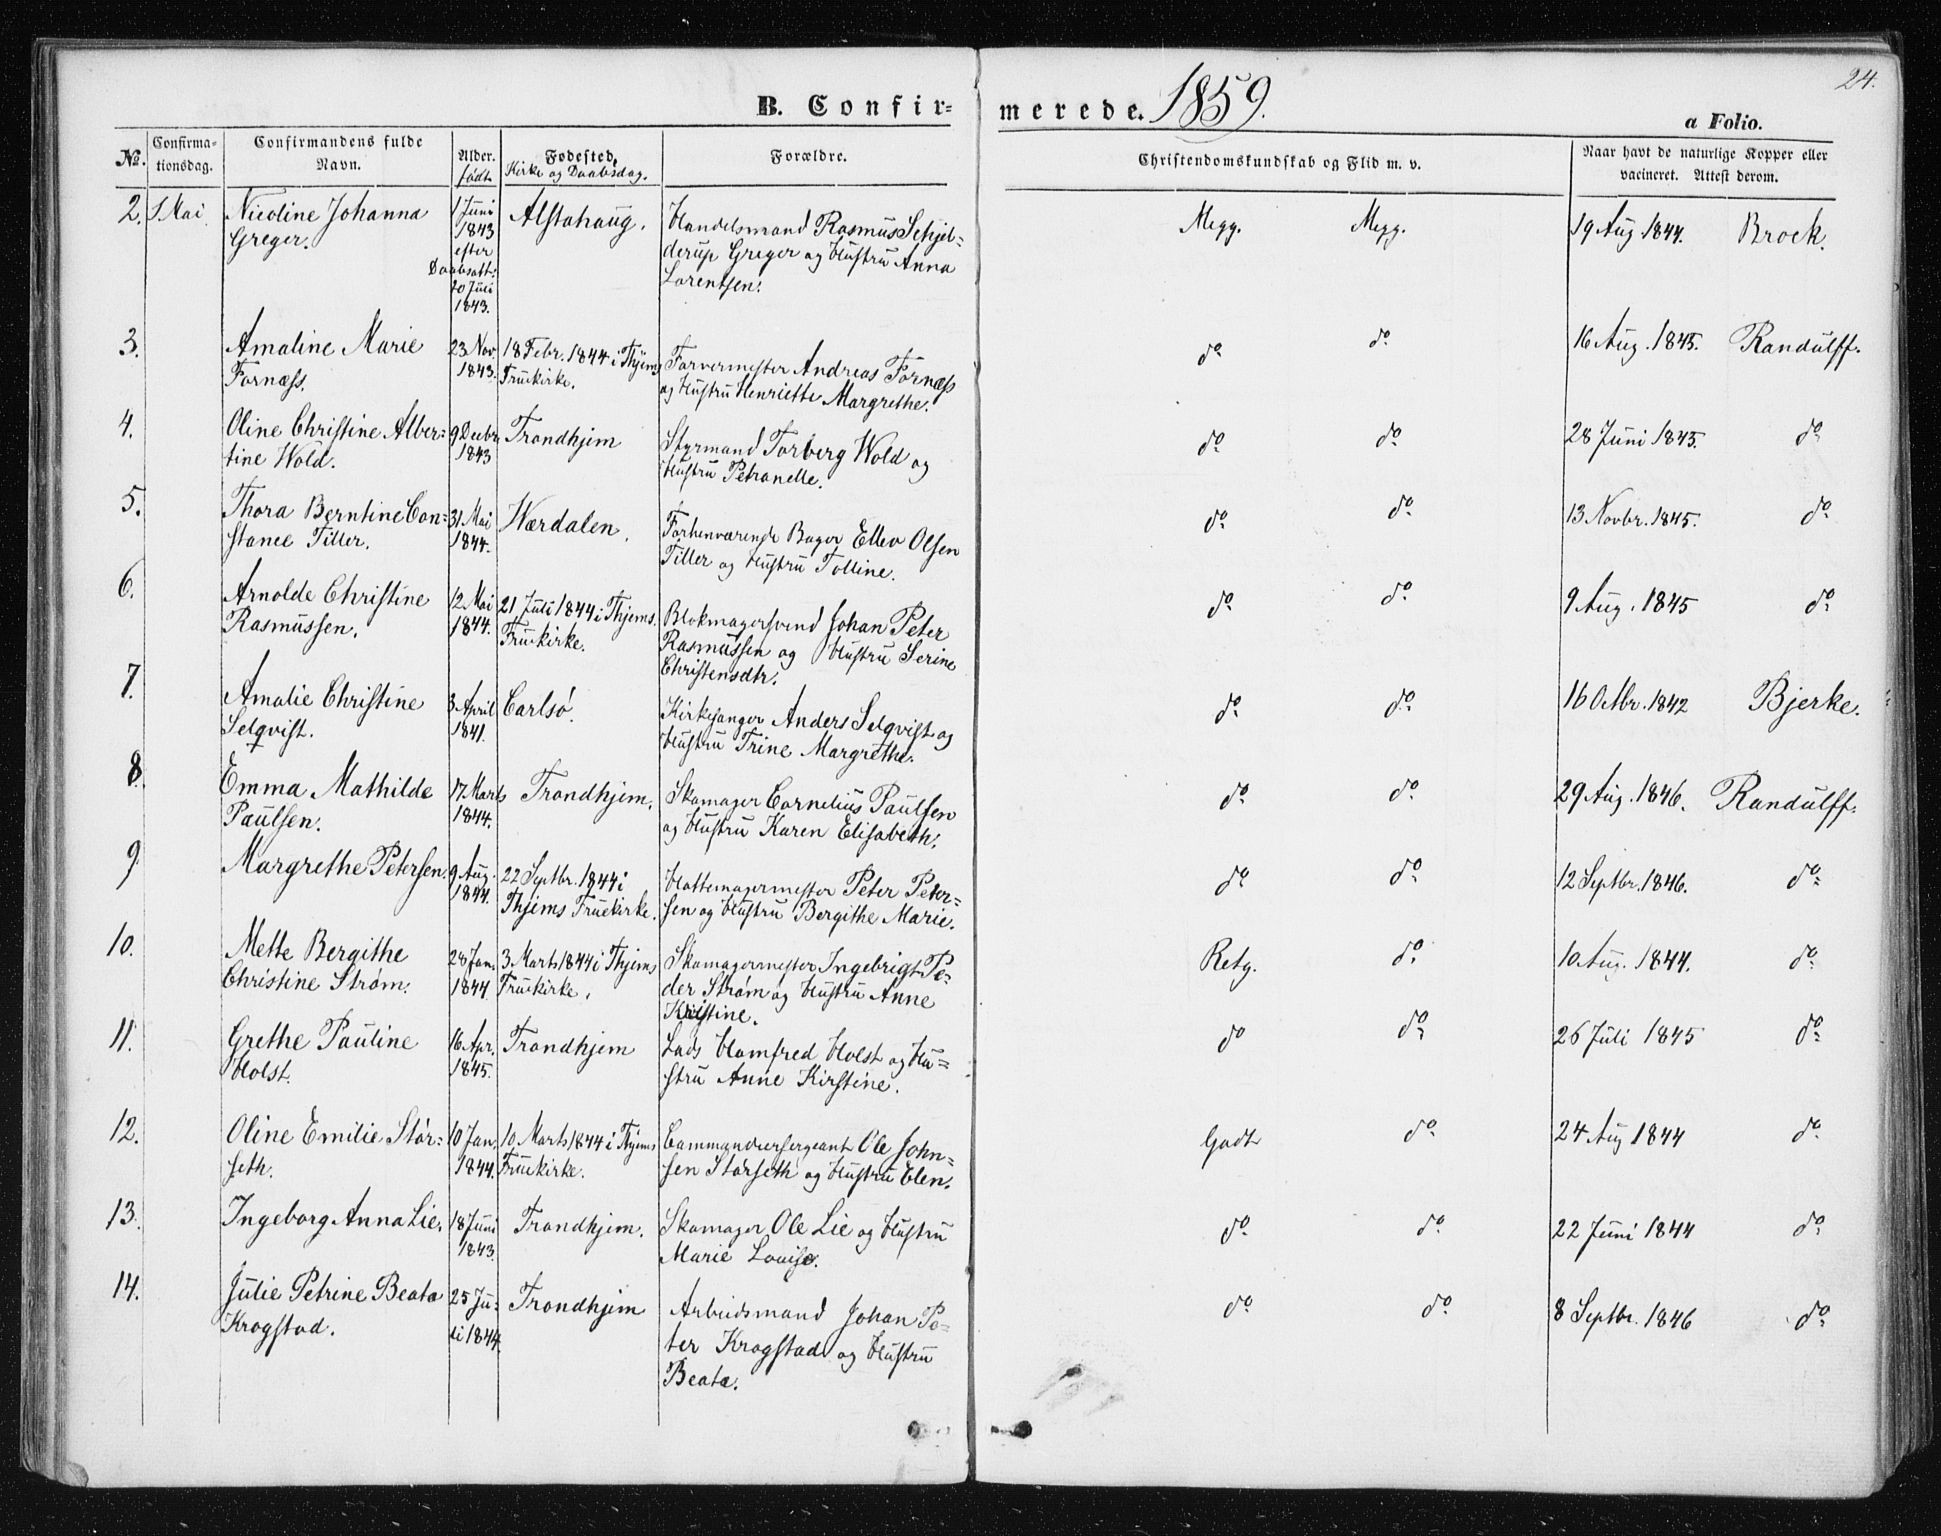 24.
B. Confir= merede. 1859.
a Folio.
No. Confirma-tionsdag. Confirmandens fulde Navn. Alder. født Fødested, Kirke og Daabsdag. Forældre. Christendomskundskab og Flid m. v. Naar havt de naturlige Kopper eller vacineret. Attest derom.
2. 1 Mai Nicoline Johanna 1 Juni Alstahaug. Handelsmand Rasmus Schjel= Megg. Megg. 19 Aug 1844. Brock.
Greger. 1843 derup Greger og Hustru Anna
efter Lorentsen.
Daabsatt.
20 Juli
1843.
3. Amaline Marie 23 Nov. 18 Febr. 1844 i Thjems Farvermester Andreas Fornæss do do 16 Aug. 1845. Randulff.
Fornæss. 1843. Fruekirke. og Hustru Henriette Margrethe.
4. Oline Christine Alber= 9 Decbr Trondhjem Styrmand Torberg Wold og do do 28 Juni 1845. do
tine Wold. 1843 Hustru Petranelle.
5. Thora Berntine Con= 31 Mai Værdalen. Forhenværende Bager Ellev Olsen do do 13 Novbr. 1845. do
stance Tiller. 1844. Tiller og Hustru Tolline.
6. Arnolde Christine 12 Mai 21 Juli 1844 i Thjems. Blokmagersvend Johan Peter do do 9 Aug. 1845 do
Rasmussen. 1844. Fruekirke. Rasmussen og Hustru Serine
Christensdtr.
7. Amalie Christine 3 April Carlsö. Kirkesanger Anders Selqvist og do do 16 Octbr. 1842 Bjerke.
Selqvist. 1841. Hustru Trine Margrethe.
8. Emma Mathilde 17 Marts Trondhjem. Skomager Cornelius Paulsen do do 29 Aug. 1846. Randulff.
Paulsen. 1844. og Hustru Karen Elisabeth.
9 Margrethe Petersen. 9 Aug. 22 Septbr. 1844 i Hattemagermester Peter Peter= do do 12 Septbr. 1846. do
1844. Thjems Fruekirke. sen og Hustru Bergithe Marie.
10. Mette Bergithe 28 Jan. 3 Marts 1844 i Thjems Skomagermester Ingebrigt Pe= Retg. do 10 Aug. 1844. do
Christine Strøm. 1844. Fruekirke. der Strøm og Hustru Anne
Kristine.
11. Grethe Pauline 16 Apr. Trondhjem Lods Hamfred Holst og Hu= do do 26 Juli 1845 do
Holst. 1845. stru Anne Kirstine.
12. Oline Emilie Stør= 10 Jan. 10 Marts 1844 i Thjems Commandeersergeant Ole John= Godt do 24 Aug 1844 do
seth. 1844. Fruekirke. sen Størseth og Hustru Elen.
13. Ingeborg Anna Lie. 18 Juni Trondhjem. Skomager Ole Lie og Hustru do do 22 Juni 1844 do
1843. Marie Louise.
14. Julie Petrine Beata 25 Ju= Trondhjem Arbeidsmand Johan Pe= do do 8 Septbr. 1846 do
Krogstad. li 1844. ter Krogstad og Hustru
Beata.